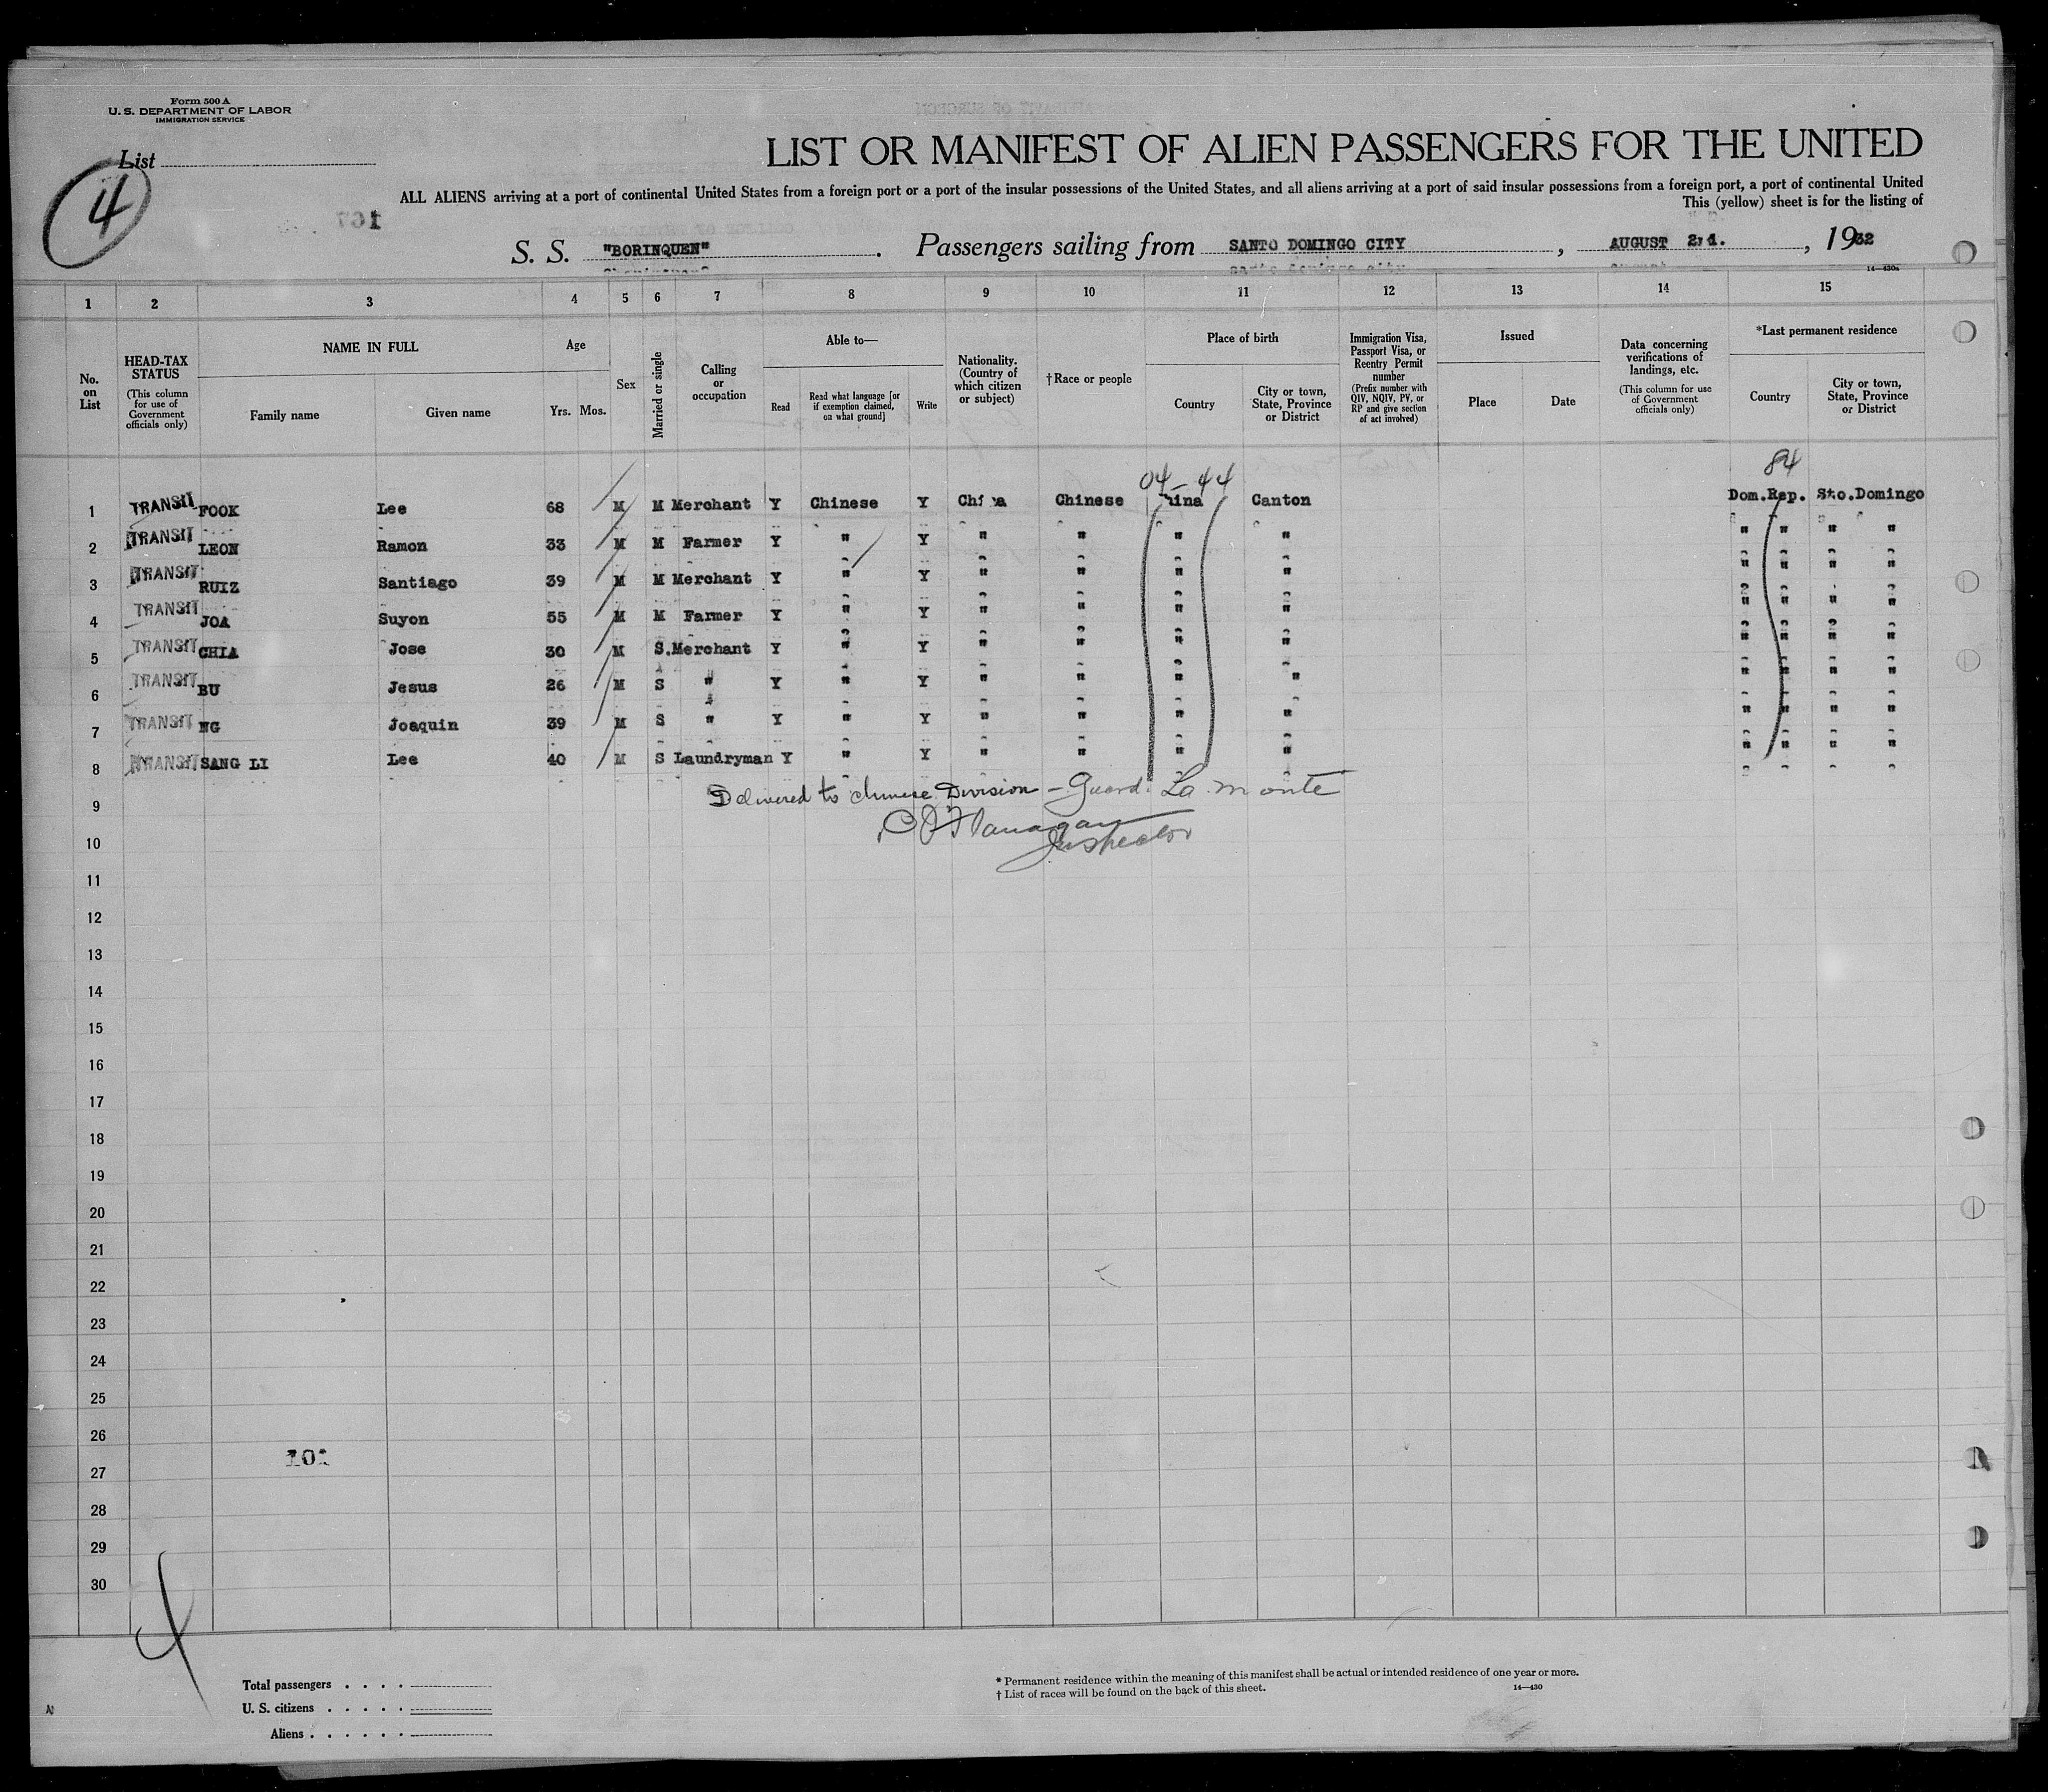 Form 500 A
U. S. DEPARTMENT OF LABOR
IMMIGRATION SERVICE
List
4
LIST OR MANIFEST OF ALIEN PASSENGERS FOR THE UNITED
ALL ALIENS arriving at a port of continental United States from a foreign port or a port of the insular possessions of the United States, and all aliens arriving at a port of said insular possessions from a foreign port, a port of continental United
This (yellow) sheet is for the listing of
S. S. "BORINQUEN" . Passengers sailing from SANTO DOMINGO CITY , AUGUST 2nd. , 1932
14—430a
1 2 3 4 5 6 7 8 9 10 11 12 13 14 15
No. on List
HEAD-TAX STATUS (This column for use of Government officials only)
NAME IN FULL
Family name Given name
Age
Yrs. Mos.
Sex
Married or single
Calling or occupation
Able to—
Read Read what language [or if exemption claimed, on what ground] Write
Nationality. (Country of which citizen or subject)
†Race or people
Place of birth
Country City or town, State, Province or District
Immigration Visa, Passport Visa, or Reentry Permit number (Prefix number with QIV, NQIV, PV, or RP and give section of act involved)
Issued
Place Date
Data concerning verifications of landings, etc. (This column for use of Government officials only)
*Last permanent residence
Country City or town, State, Province or District
04-44 84
1 TRANSIT FOOK Lee 68 M M Merchant Y Chinese Y China Chinese China Canton Dom.Rep. Sto.Domingo
2 TRANSIT LEON Ramon 33 M M Farmer Y " Y " " " " " " " "
3 TRANSIT RUIZ Santiago 39 M M Merchant Y " Y " " " " " " " "
4 TRANSIT JOA Suyon 55 M M Farmer Y " Y " " " " " " " "
5 TRANSIT CHIA Jose 30 M S. Merchant Y " Y " " " " " " " "
6 TRANSIT BU Jesus 26 M S " Y " Y " " " " " " " "
7 TRANSIT NG Joaquin 39 M S " Y " Y " " " " " " " "
8 TRANSIT SANG LI Lee 40 M S Laundryman Y " Y " " " " " " " "
9 Delivered to Chinese Division - Guard. La monte
10 Flanagan
Inspector
11
12
13
14
15
16
17
18
19
20
21
22
23
24
25
26
101
27
28
29
30
Total passengers . . . .
U. S. citizens . . . . .
Aliens . . . . . .
* Permanent residence within the meaning of this manifest shall be actual or intended residence of one year or more.
† List of races will be found on the back of this sheet.
14—430